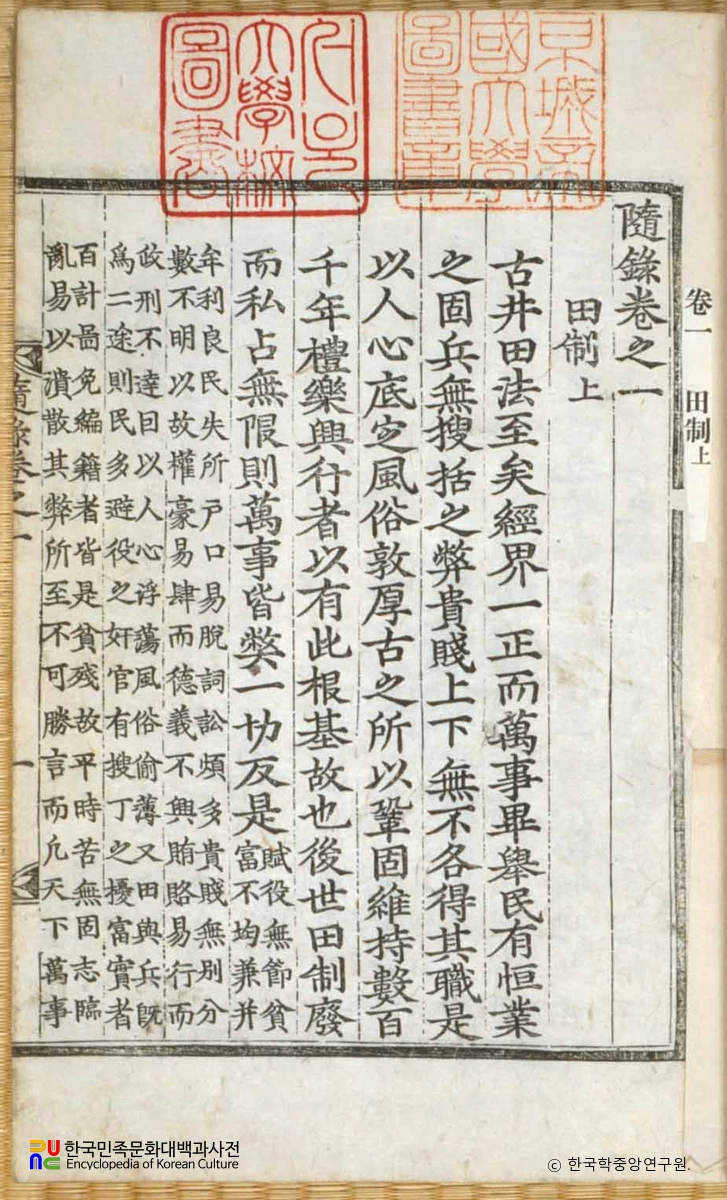 隨錄卷之一
田制上
古井田法至矣經界一正而萬事畢舉民有恒業
之固兵無搜括之弊貴賤上下無不各得其職是
以人心底定風俗敦厚古之所以鞏固維持數百
千年禮樂興行者以有此根基故也後世田制廢
而私占無限則萬事皆弊一切反是
賦役無節貧
富不均兼并
牟利良民失所戶口易脫詞訟煩多貴賤無別分
數不明以故權豪易肆而德義不興賄賂易行而
政刑不達曰以人心浮蕩風俗偷薄又田與兵旣
爲二途則民多避役之奸官有搜丁之擾富實者
百計啚免編籍者皆是貧殘故平時苦無固志臨
亂易以潰散其弊所至不可勝言而凡天下萬事
隨錄卷之一
一
卷一 田制上
京城帝
國大學
圖書章
大學校
圖書
한국민족문화대백과사전
Encyclopedia of Korean Culture
ⓒ 한국학중앙연구원.